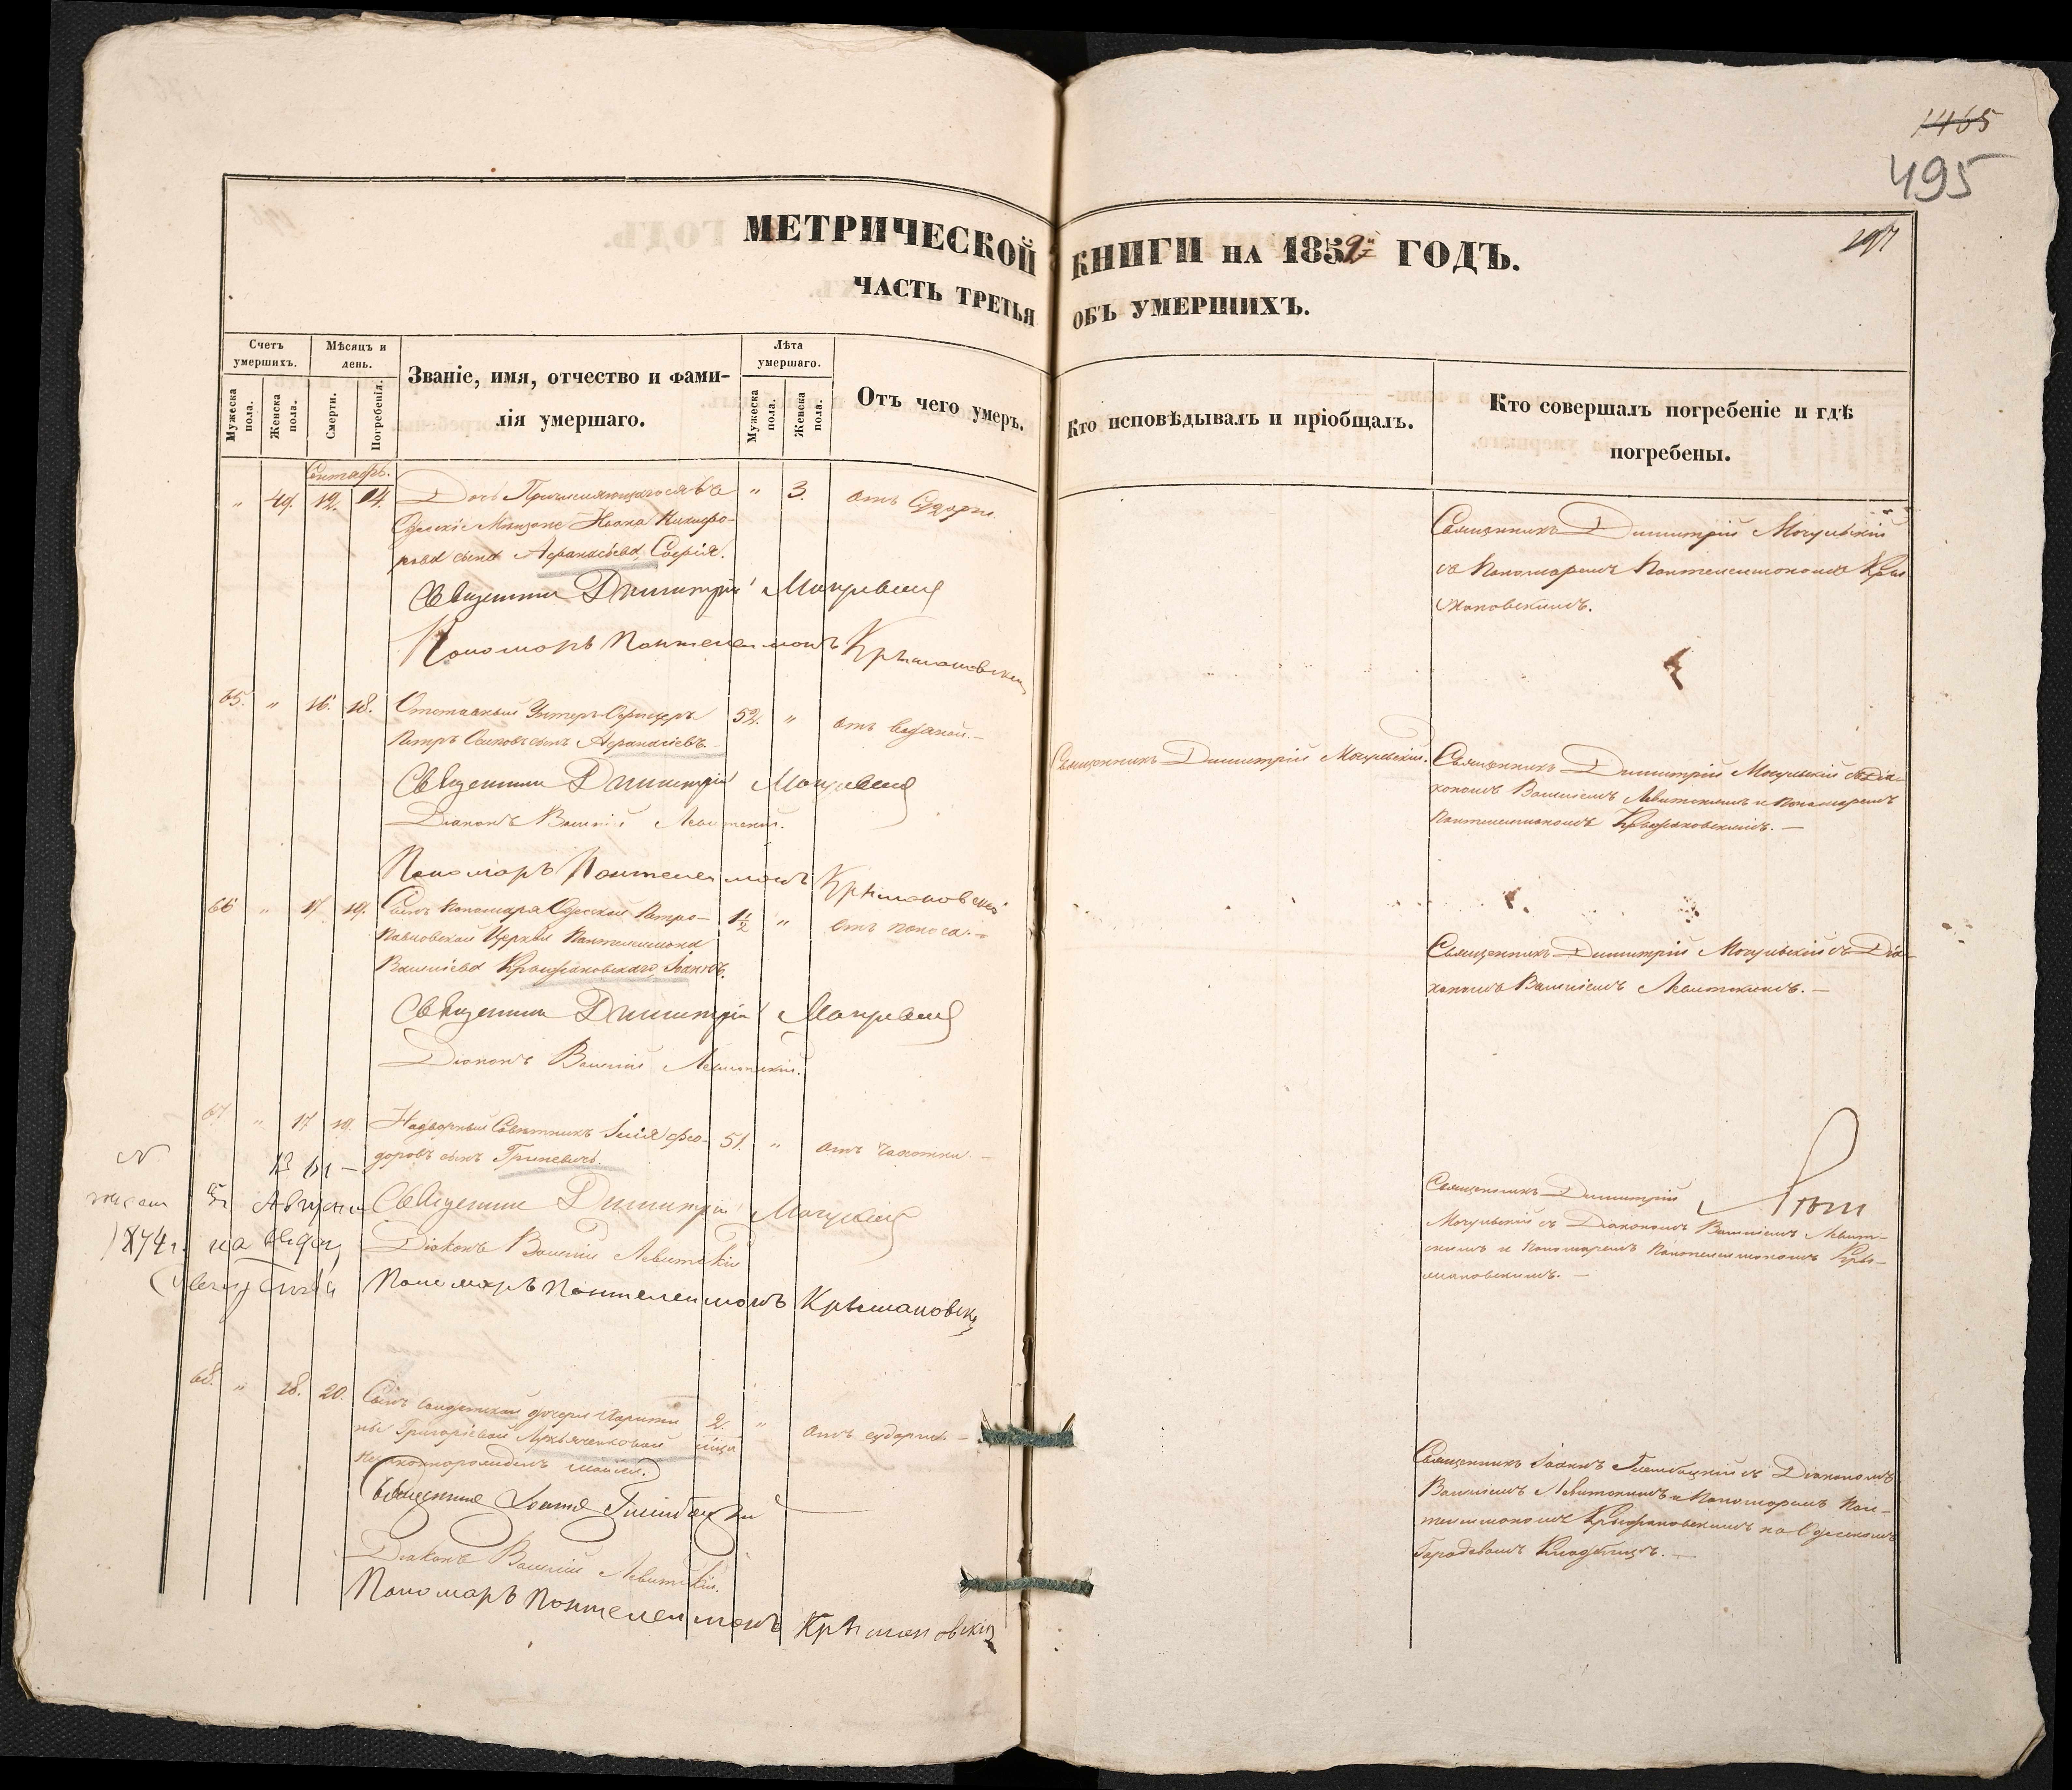 1465
495
197
МЕТРИЧЕСКОЙ КНИГИ НА 1852 ГОДЪ.
ЧАСТЬ ТРЕТЬЯ ОБЪ УМЕРШИХЪ.
Счетъ умершихъ.
Мужеска пола.
Женска пола.
Мѣсяцъ и день.
Смерти.
Погребенія.
Званіе, имя, отчество и фами-
лія умершаго.
Лѣта умершаго.
Мужеска пола.
Женска пола.
Отъ чего умеръ.
Кто исповѣдывалъ и пріобщалъ.
Кто совершалъ погребеніе и гдѣ
погребены.
Сентябрь.
" 49. 12. 14. Дочь Причисляющагося въ
" 3. отъ Судорги
рова сына Афанасьева, Софія.
Священникъ Димитрій Могульскій
Пономарь Пантелеимонъ Крыжановскій
Священникъ Димитрій Могульскій
съ Пономаремъ Пантелеимономъ Кры
жановскимъ.
65. " 16. 18. Отставный Унтеръ-Офицеръ
Петръ Осиповъ сынъ Афанасіевъ.
52. " отъ водяной.
Священникъ Димитрій Могульскій
Діаконъ Василій Левитскій.
Пономарь Пантелеимонъ Крыжановскій
Священникъ Димитрій Могульскій.
Священникъ Димитрій Могульскій съ Діа-
кономъ Василіемъ Левитскимъ и Пономаремъ
Пантелеимономъ Крыжановскимъ. —
66 " 17 19. Сынъ Пономаря Одесской Петро-
Павловской Церкви Пантелеимона
Василіева Крыжановскаго, Іоаннъ.
1 1/2 " отъ поноса.
Священникъ Димитрій Могульскій
Діаконъ Василій Левитскій.
Священникъ Димитрій Могульскій съ Діа-
кономъ Василіемъ Левитскимъ. —
67 " 17 19. Надворный Совѣтникъ Илія Фео-
доровъ сынъ Гриневичъ.
51. " отъ чахотки. —
Священникъ Димитрій Могульскій
Діаконъ Василій Левитскій
Пономарь Пантелеимонъ Крыжановскій
Священникъ Димитрій
Могульскій съ Діакономъ Василіемъ Левит-
скимъ и Пономаремъ Пантелеимономъ Кры-
жановскимъ. —
13
Августа
1874 г.
68. " 18. 20. Сынъ солдатской дочери
ны Григоріевой
2. "
отъ судорги. —
Священникъ Іоаннъ
Діаконъ Василій Левитскій.
Пономарь Пантелеимонъ Крыжановскій
Священникъ Іоаннъ съ Діакономъ
Василіемъ Левитскимъ и Пономаремъ Пан-
телеимономъ Крыжановскимъ на Одесскомъ
Городовомъ Кладбищѣ. —